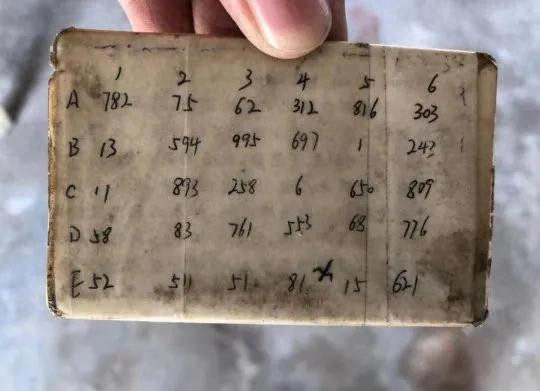 1 2 3 4 5 6
A 782 75 62 312 816 303
B 13 594 995 697 1 243
C 11 893 258 6 650 809
D 58 83 761 553 68 776
E 52 511 51 81 15 621